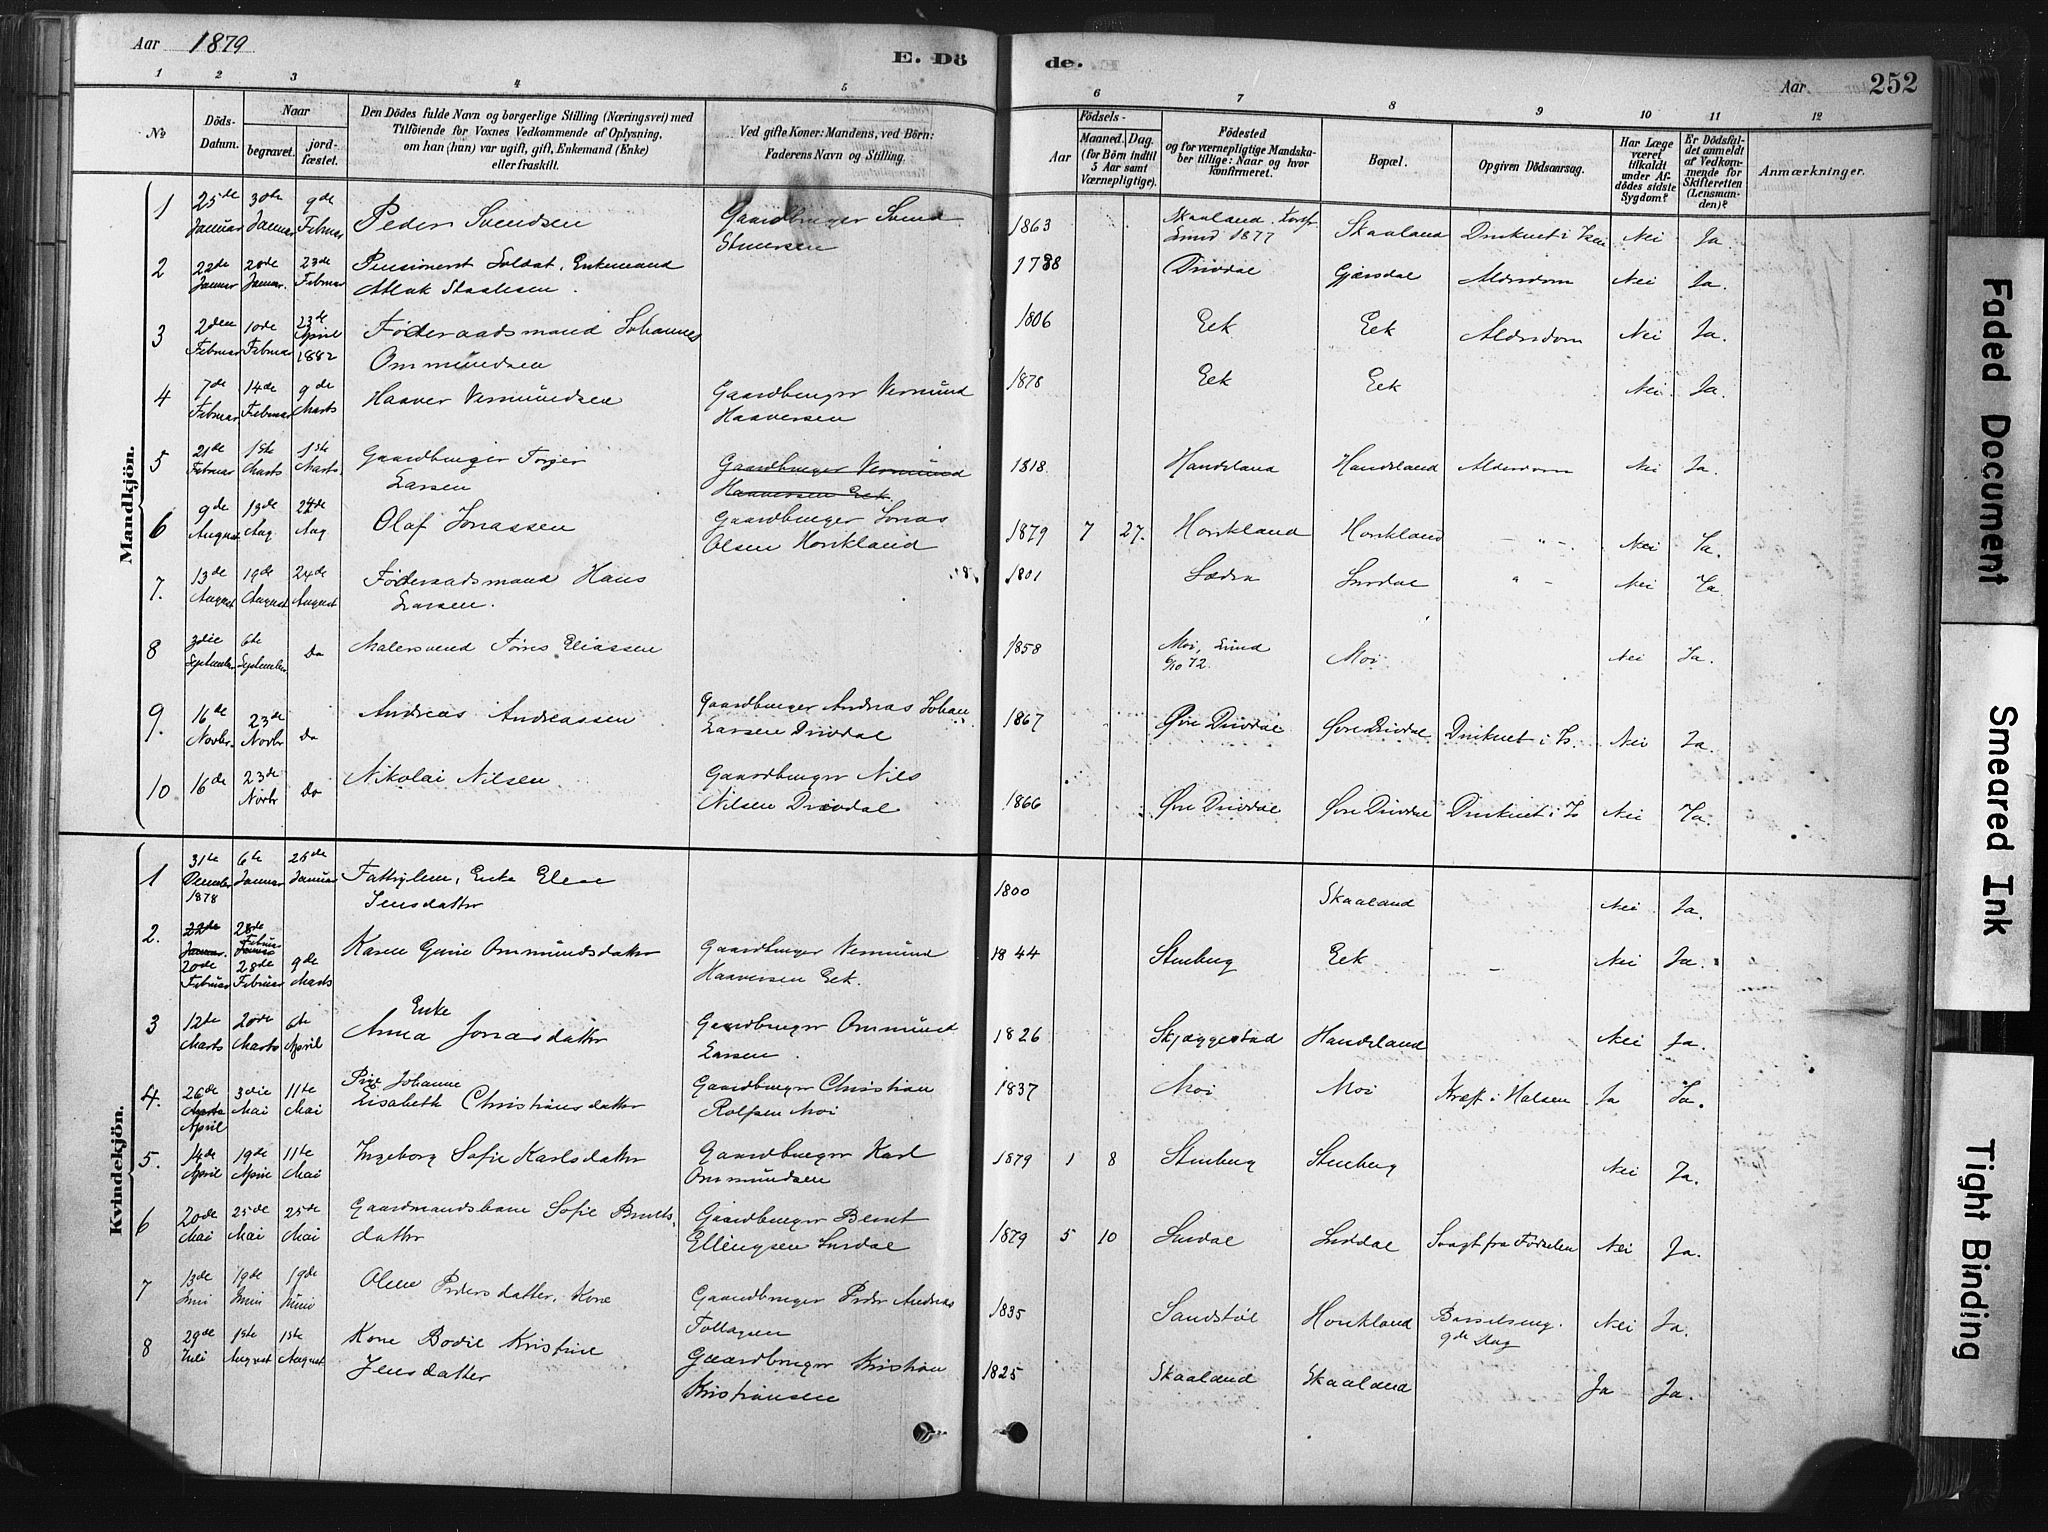 Aar 1879
E. Dö
de.
Aar
252
1 2 3 4 5 6 7 8 9 10 11 12
No
Döds-
Datum.
Naar
begravet.
jord-
fæstet.
Den Dödes fulde Navn og borgerlige Stilling (Næringsvei) med
Tilföiende for Voxnes Vedkommende af Oplysning,
om han (hun) var ugift, gift, Enkemand (Enke)
eller fraskilt.
Ved gifte Koner: Mandens, ved Börn:
Faderens Navn og Stilling.
Födsels-
Aar
Maaned. Dag.
(for Börn indtil
5 Aar samt
Værnepligtige).
Födested
og for værnepligtige Mandska-
ber tillige: Naar og hvor
konfirmeret.
Bopæl.
Opgiven Dödsaarsag.
Har Læge
været
tilkaldt
under Af-
dödes sidste
Sygdom?
Er Dödsfal-
det anmeldt
af Vedkom-
mende for
Skifteretten
(Lensman-
den)?
Anmærkninger.
Mandkjön.
1 25de Januar 30te Januar 9de Februar Peder Svendsen Gaardbruger Svend 1863 Skaaland. Konf. Lund 1877 Skaaland Druknet i Nei Ja
2 22de Januar 28de Januar. 23de Februar Pensioneret Soldat, Enkemand Atlak Staalesen. 1788 Drivdal Gjersdal Aldersdom Nei Ja.
3 2den Februar 10de Februar 23de April 1882 Föderaadsmand Johannes Ommundsen 1806 Eek Eek Aldersdom Nei Ja.
4 7de Februar 14de Februar 9de Marts Haaver Vermundsen Gaardbruger Vermund Haaversen 1878 Eek Eek Nei Ja.
5 21de Februar 1ste Marts 1ste Marts. Gaardbruger Torger Larsen Gaardbruger Vermund Haaversen Eek. 1818 Handeland Handeland Alderdom Nei Ja.
6 9de August 13de Aug. 24de Aug Olaf Jonassen Gaardbruger Jonas Olsen Hovkland 1879 7 27. Hovkland Hovkland - " - Nei Ja.
7. 13de August 19de August 24de August Föderaadsmand Hans Larsen. 1801 Lædre Surdal " - Nei Ja
8 3die September 6te September Do Malersvend Tørres Eliassen 1858 Moi, Lund 6/10 72. Moi Nei Ja.
9. 16de Novbr. 23de Novbr Do Andreas Andreassen Gaardbruger Andreas Johan Larsen Drivdal 1867 Øvre Drivdal Øvre Drivdal Druknet i Is. Nei Ja.
10 16de 23de Novbr Do Nikolai Nilsen Gaardbruger Nils Nilsen Drivdal 1866 Øvre Drivdal Øvre Drivdal Druknet i Is Nei Ja.
Kvindekjön.
1 31te December 1878 6te Januar 26de Januar Fattiglem, Enke Elen Jensdatter 1800 Skaaland Nei Ja.
2. 22de Januar. 20de Februar 28de Februar Januar 28de Februar 9de Marts Karen Gurie Ommundsdatter Gaardbruger Vermund Haaversen Eek. 1844 Stenberg Eek - Nei Ja.
3 12te Marts 20de Marts 6te April Enke Anna Jonasdatter Gaardbruger Ommund Larsen. 1826 Skjæggestad Handeland Nei Ja.
4. 26de Marts April 3die Mai 11te Mai Pige Johanne Elisabeth Christiansdatter Gaardbruger Christian Rolfsen Moi 1837 Moi Moi Kræft i Halsen Ja Ja.
5. 14de April 19de April 11te Mai Ingeborg Sofie Karlsdatter Gaardbruger Karl Ommundsen 1879 1 8 Stenberg Stenberg Nei Ja.
6 20de Mai 25de Mai 25de Mai Gaardmandsbarn Sofie Berntsdatter Gaardbruger Bernt Ellingsen Surdal 1879 5 10 Surdal Surdal Svagt fra Fødselen Nei Ja.
7 13de Juni 19de Juni 19de Juni Olene Pedersdatter, Kone Gaardbruger Peder Andreas Tollagsen 1835 Sandstøl Hovkland Barselseng. 9de Dag Nei Ja.
8 29de Juli 1ste August 1ste August Kone Bodil Kristine Jensdatter Gaardbruger Kristian Kristiansen 1825 Skaaland Skaaland Ja Ja.
Faded Document
Smeared Ink
Tight Binding